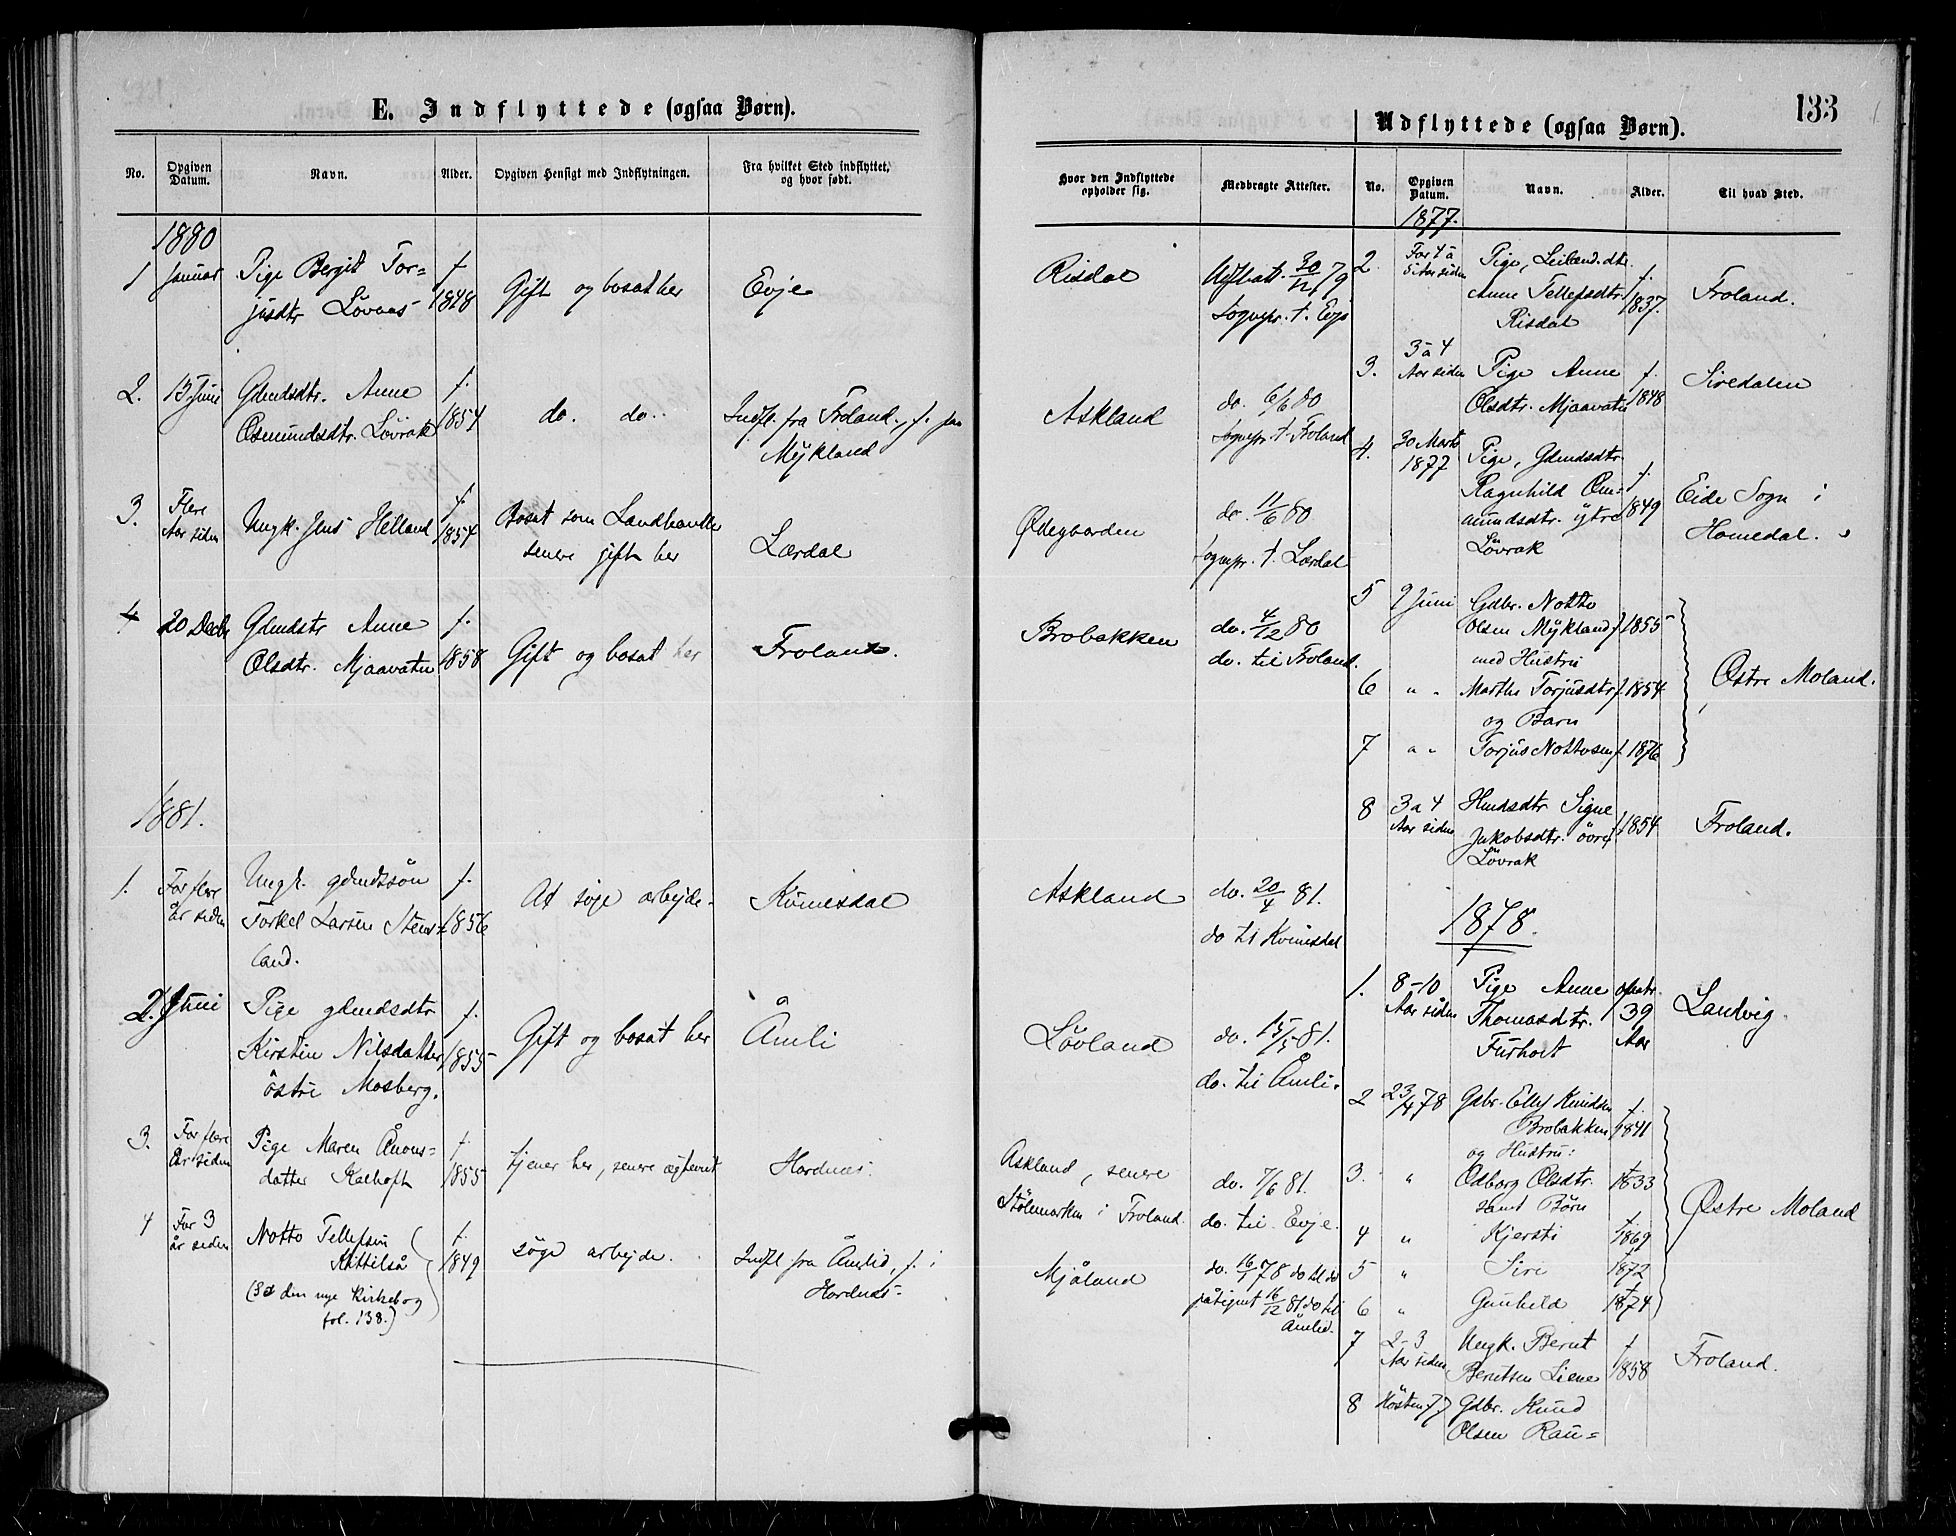 E. Indflyttede (ogsaa Børn).
No.
Opgiven
Datum.
Navn.
Alder.
Opgiven Hensigt med Indflytningen.
Fra hvilket Sted indflyttet,
og hvor født.
1880
1
Januar
Pige Bergit Tor=
jusdtr Løvaas
f.
1848
Gift og bosat her
Evje
2.
13 Juni
Gdmdsdtr. Anne
Osmundsdtr. Lövrak
f.
1854
do. do.
Indfl. fra Froland, f. paa
Mykland
3.
Flere
Aar siden
Ungk. Jens Helland
f.
1854
Bosat som Landhandler
senere gift her
Lærdal
4
20 Decbr
Gdmdstr Anne
Olsdtr. Mjaavatn
f.
1858
Gift og bosat her
Froland.
1881.
1.
For flere
år siden
Ungk. gdmdssön
Torkel Larsen Stens=
land.
f.
1856
At söge arbejde.
Kvinesdal
2.
Juni
Pige gdmdsdtr
Kirstin Nilsdatter
östre Mosberg.
f.
1855
Gift og bosat her
Åmli
3.
For flere
år siden
Pige Maren Ånons=
datter Kalhoft
f.
1855
tjener her, senere ægteviet
Hordnæs.
4
For 3
år siden
Notto Tellefsen
Kättilså
(Se den nye kirkebog
fol. 138.)
f.
1849
söge arbejde.
Indfl fra Åmlid, f. i
Hordnæs.
133
Udflyttede (ogsaa Børn).
Hvor den Indflyttede
opholder sig.
Medbragte Attester.
No.
Opgiven
Datum.
Navn.
Alder.
Til hvad Sted.
Risdal
Udflatt. 30/12 79
Sognepr. t. Evje
Askland
do. 6/6 80
Sognepr. t. Froland
Ødegaarden
do. 11/6 80
Sognepr. t. Lærdal
Brobakken
do. 4/12 80
do. til Froland.
Askland
do. 20/4 81.
do til Kvinesdal
Lövland
do. 15/5 81.
do. til Åmli.
Askland, senere
Stölemarken i Froland.
do. 7/6 81.
do. til Evje.
Mjåland
do. 16/1 78 do til do
påtegnet 16/12 81. do til
Åmlid.
1877.
2.
For 4 à
5 Aar siden
Pige, Leilænd.dtr.
Anne Tellefsdtr.
Risdal
f.
1837.
Froland.
3.
3 à 4
Aar siden
Pige Anne
Olsdtr. Mjaavatn
f.
1848
Siredalen
4.
30 Marts
1877
Pige, Gdmdsdtr
Ragnhild Om=
mundsdtr. ytre
Lövrak
f.
1849
Eide Sogn i
Homedal.
5
9 Juni
Gdbr. Notto
Olsen Mykland
f 1855
med Hustru
6
" "
Marthe Torjusdtr
f. 1854
og Barn
7
" "
Torjus Nottosen
f. 1876
Østre Moland.
8
3 a 4
Aar siden
Hmdsdtr Signe
Jakobsdtr. övre
Lövrak
f. 1854
Froland.
1878.
1.
8-10
Aar siden
Pige Anne
Thomasdtr.
Furholt
39
Aar
Landvig.
2
23/4 78
Gdbr. Ellef Knudsen
Brobakken
f.
1841
og Hustru:
3.
"
Odborg Olsdtr.
f.
1833
samt Børn
4
"
Kjersti
f.
1869
5
"
Siri
f.
1872
6
"
Gunhild
f.
1874
Østre Moland
7
2-3
Aar siden
Ungk. Bernt
Berntsen Liene
f.
1858
Froland.
8
Hösten 77
Gdbr. Knud
Olsen Rau=